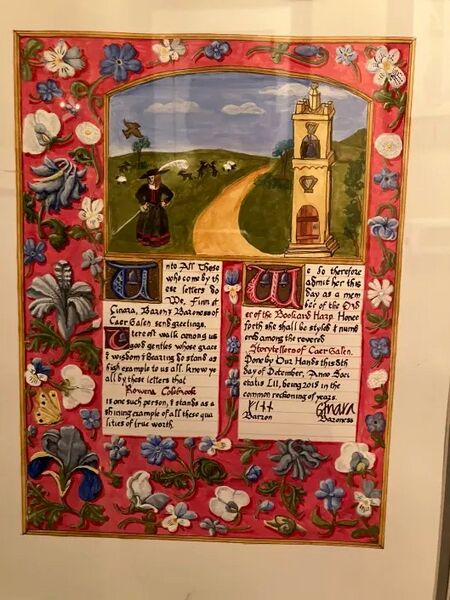 Unto All Those
who come by th
ese letters do
We, Finn &
Ginara, Baron & Baroness of
Caer Galen send greetings.
There oft walk among us
good gentles whose grace
& wisdom & bearing do stand as
high example to us all. Know ye
all by these letters that
Rowena Colebrook
is one such person, & stands as a
shining example of all these qua
lities of true worth.
We So therefore
admit her this
day as a mem
ber of the Ord
er of the Book and Harp. Hence
forth she shall be styled & numb
ered among the revered
Storytellers of Caer Galen.
Done by Our Hands this 8th
day of December, Anno Soci
etatis LII, being 2018 in the
common reckoning of years.
Ginara
Barron Baroness